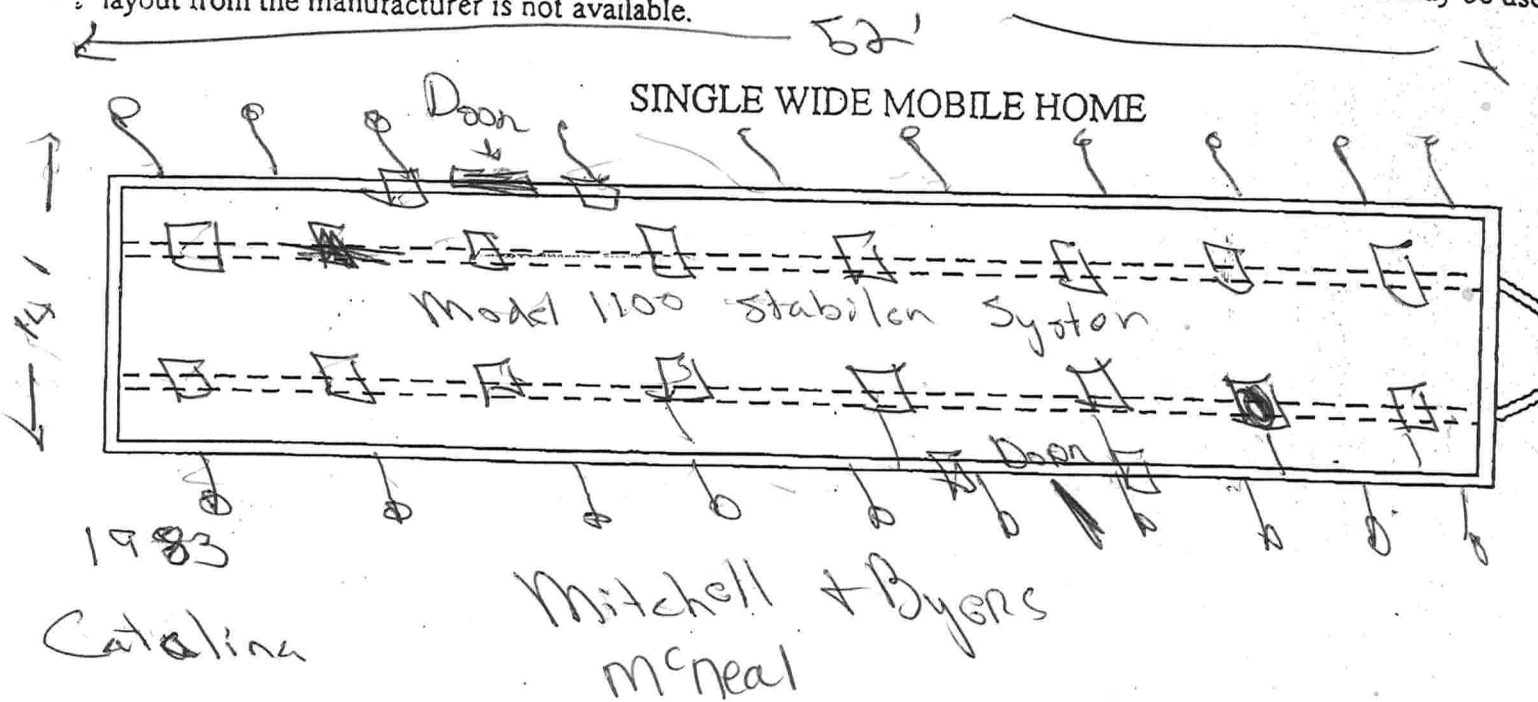 layout from the manufacturer is not available.
52'
SINGLE WIDE MOBILE HOME
Door
14'
Model 1100 Stabilen System
Door
1983
Catalina
Mitchell + Byers
McNeal